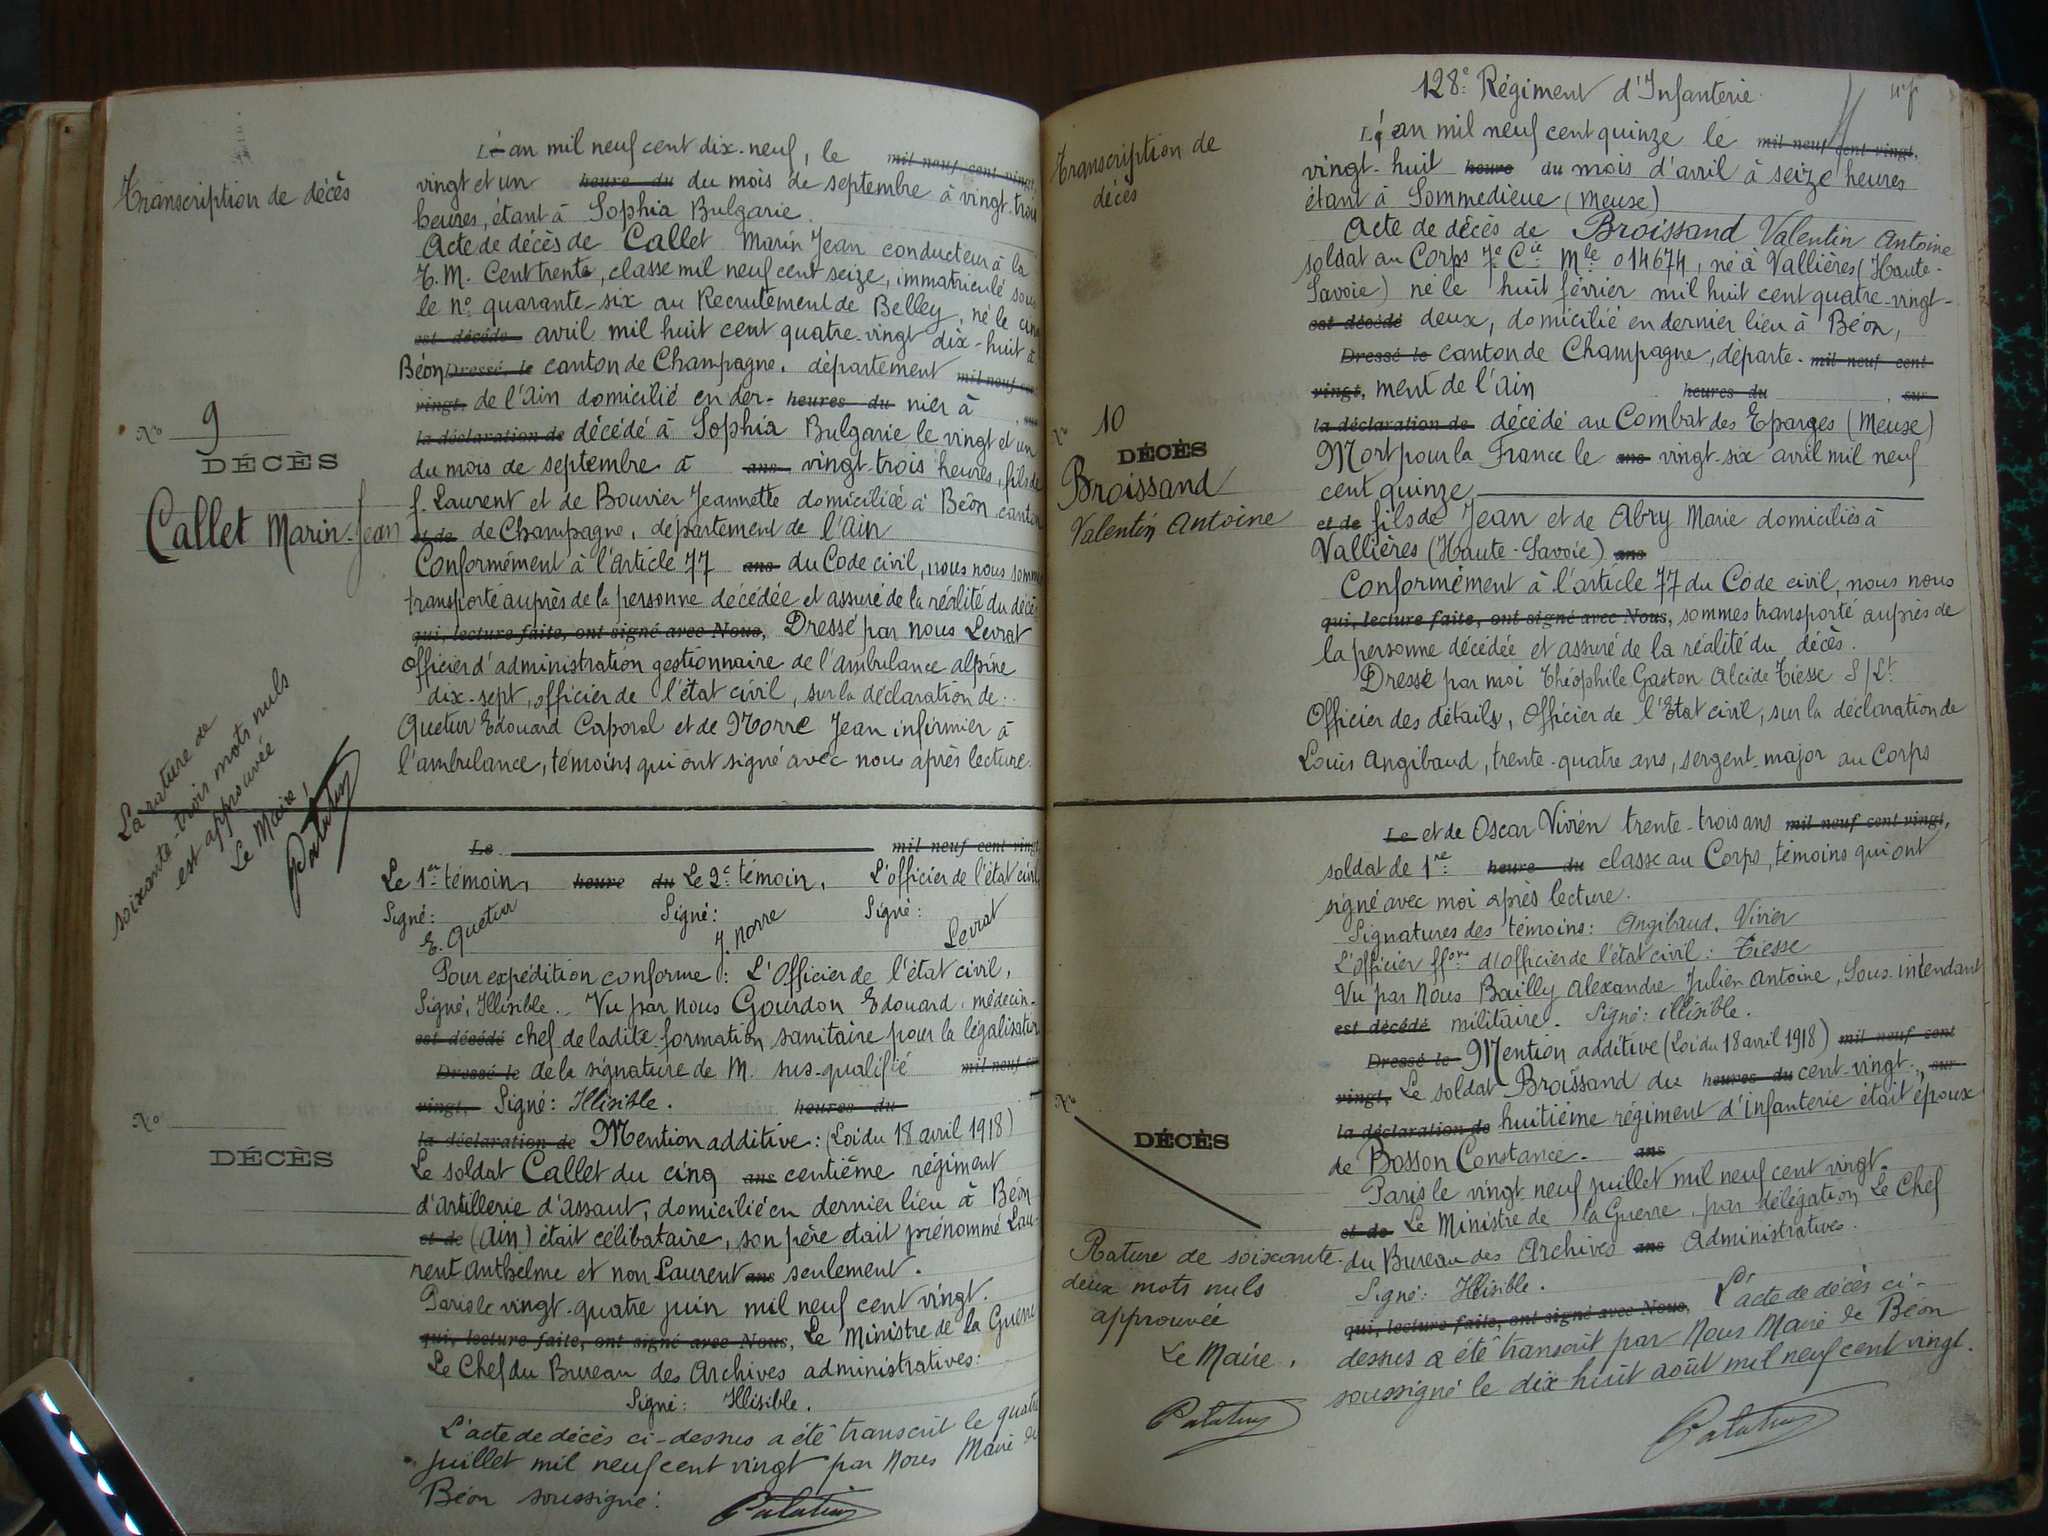 Transcription de décès
L'an mil neuf cent dix-neuf, le mil neuf cent vingt,
vingt et un heure du du mois de septembre à vingt-trois
heures, étant à Sophia Bulgarie.
Acte de décès de Callet Marin Jean conducteur à la
T. M. Cent trente, classe mil neuf cent seize, immatriculé sous
le n° quarante-six au Recrutement de Belley, né le cinq
est décédé avril mil huit cent quatre-vingt dix-huit à
Béon Dressé le canton de Champagne, département mil neuf cent
vingt, de l'Ain domicilié en der- heures du nier à
la déclaration de décédé à Sophia Bulgarie le vingt et un
du mois de septembre à ans vingt-trois heures, fils de
f. Laurent et de Bouvier Jeannette domicilié à Béon canton
et de de Champagne, département de l'Ain
Conformément à l'Article 77 ans du Code civil, nous nous sommes
transporté auprès de la personne décédée et assuré de la réalité du décès
qui, lecture faite, ont signé avec Nous, Dressé par nous Levrat
Officier d'administration gestionnaire de l'ambulance alpine
dix-sept, officier de l'état civil, sur la déclaration de:
Quetur Edouard Caporal et de Morre Jean infirmier à
l'ambulance, témoins qui ont signé avec nous après lecture.
N° 9
DÉCÈS
Callet Marin-Jean
La rature de
soixante-trois mots nuls
est approuvée
Le Maire,
Le mil neuf cent vingt
Le 1er témoin, heure du Le 2e témoin, L'officier de l'état civil,
Signé: Signé: Signé:
E. Quetur J. Morre Levrat
Pour expédition conforme: L'Officier de l'état civil,
Signé, Illisible. Vu par nous Gourdon Edouard, médecin-
est décédé chef de ladite formation sanitaire pour la légalisation
Dressé le de la signature de M. sus-qualifié mil neuf cent
vingt, Signé: Illisible. heures du
la déclaration de Mention additive: (Loi du 18 avril 1918)
Le soldat Callet du cinq ans centième régiment
d'Artillerie d'assaut, domicilié en dernier lieu à Béon
et de (Ain) était célibataire, son père était prénommé Lau-
rent Anthelme et non Laurent ans seulement.
Paris le vingt-quatre juin mil neuf cent vingt.
qui, lecture faite, ont signé avec Nous, Le Ministre de la Guerre
Le Chef du Bureau des Archives administratives:
Signé: Illisible.
L'acte de décès ci-dessus a été transcrit le quatre
juillet mil neuf cent vingt par Nous Maire de
Béon soussigné:
N°
DÉCÈS
128e Régiment d'Infanterie
Transcription de
décès
L'an mil neuf cent quinze le mil neuf cent vingt,
vingt-huit heure du mois d'avril à seize heures
étant à Sommedieue (Meuse)
Acte de décès de Broissand Valentin Antoine
soldat au Corps 7e Cie Mle 014674, né à Vallières (Haute-
Savoie) né le huit février mil huit cent quatre-vingt-
est décédé deux, domicilié en dernier lieu à Béon,
Dressé le canton de Champagne, départe- mil neuf cent
vingt, ment de l'Ain heures du , sur
la déclaration de décédé au Combat des Eparges (Meuse)
Mort pour la France le ans vingt-six avril mil neuf
cent quinze
et de fils de Jean et de Abry Marie domiciliés à
Vallières (Haute-Savoie) ans
Conformément à l'article 77 du Code civil, nous nous
qui, lecture faite, ont signé avec Nous, sommes transporté auprès de
la personne décédée et assuré de la réalité du décès.
Dressé par moi Théophile Gaston Alcide Tiesse S/Lt
Officier des détails, Officier de l'Etat civil, sur la déclaration de
Louis Angibaud, trente-quatre ans, sergent-major au Corps
N° 10
DÉCÈS
Broissand
Valentin Antoine
Le et de Oscar Vivien trente-trois ans mil neuf cent vingt,
soldat de 1re heure du classe au Corps, témoins qui ont
signé avec moi après lecture.
Signatures des témoins: Angibaud, Vivier
L'Officier ffons d'officier de l'état civil: Tiesse
Vu par Nous Bailly Alexandre Julien Antoine, Sous-intendant
est décédé militaire. Signé: illisible.
Dressé le Mention additive (Loi du 18 avril 1918) mil neuf cent
vingt, Le soldat Broissand du heures du cent-vingt-, sur
la déclaration de huitième régiment d'infanterie était époux
de Bosson Constance. ans
Paris le vingt-neuf juillet mil neuf cent vingt.
et de Le Ministre de la Guerre, par délégation Le Chef
du Bureau des Archives ans Administratives.
Signé: Illisible.
qui, lecture faite, ont signé avec Nous, L'acte de décès ci-
dessus a été transcrit par Nous Maire de Béon
soussigné le dix huit août mil neuf cent vingt.
N°
DÉCÈS
Rature de soixante-
deux mots nuls
approuvée
Le Maire,